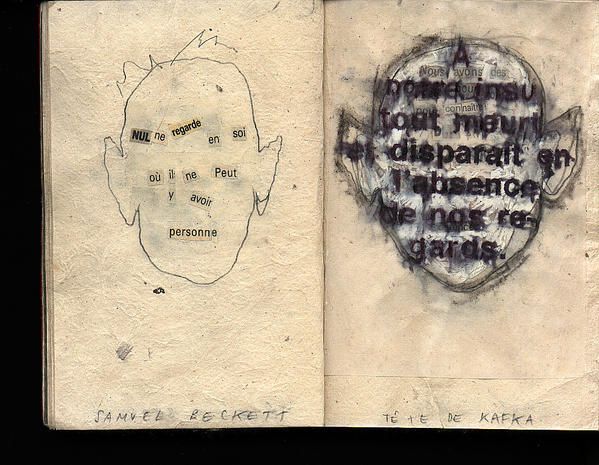 NUL ne regarde en soi
où il ne Peut
y avoir
personne
SAMUEL BECKETT
A
Nous avons des
notre insu
connaître
tout meurt
et disparait en
l'absence
de nos re-
gards.
TÊTE DE KAFKA